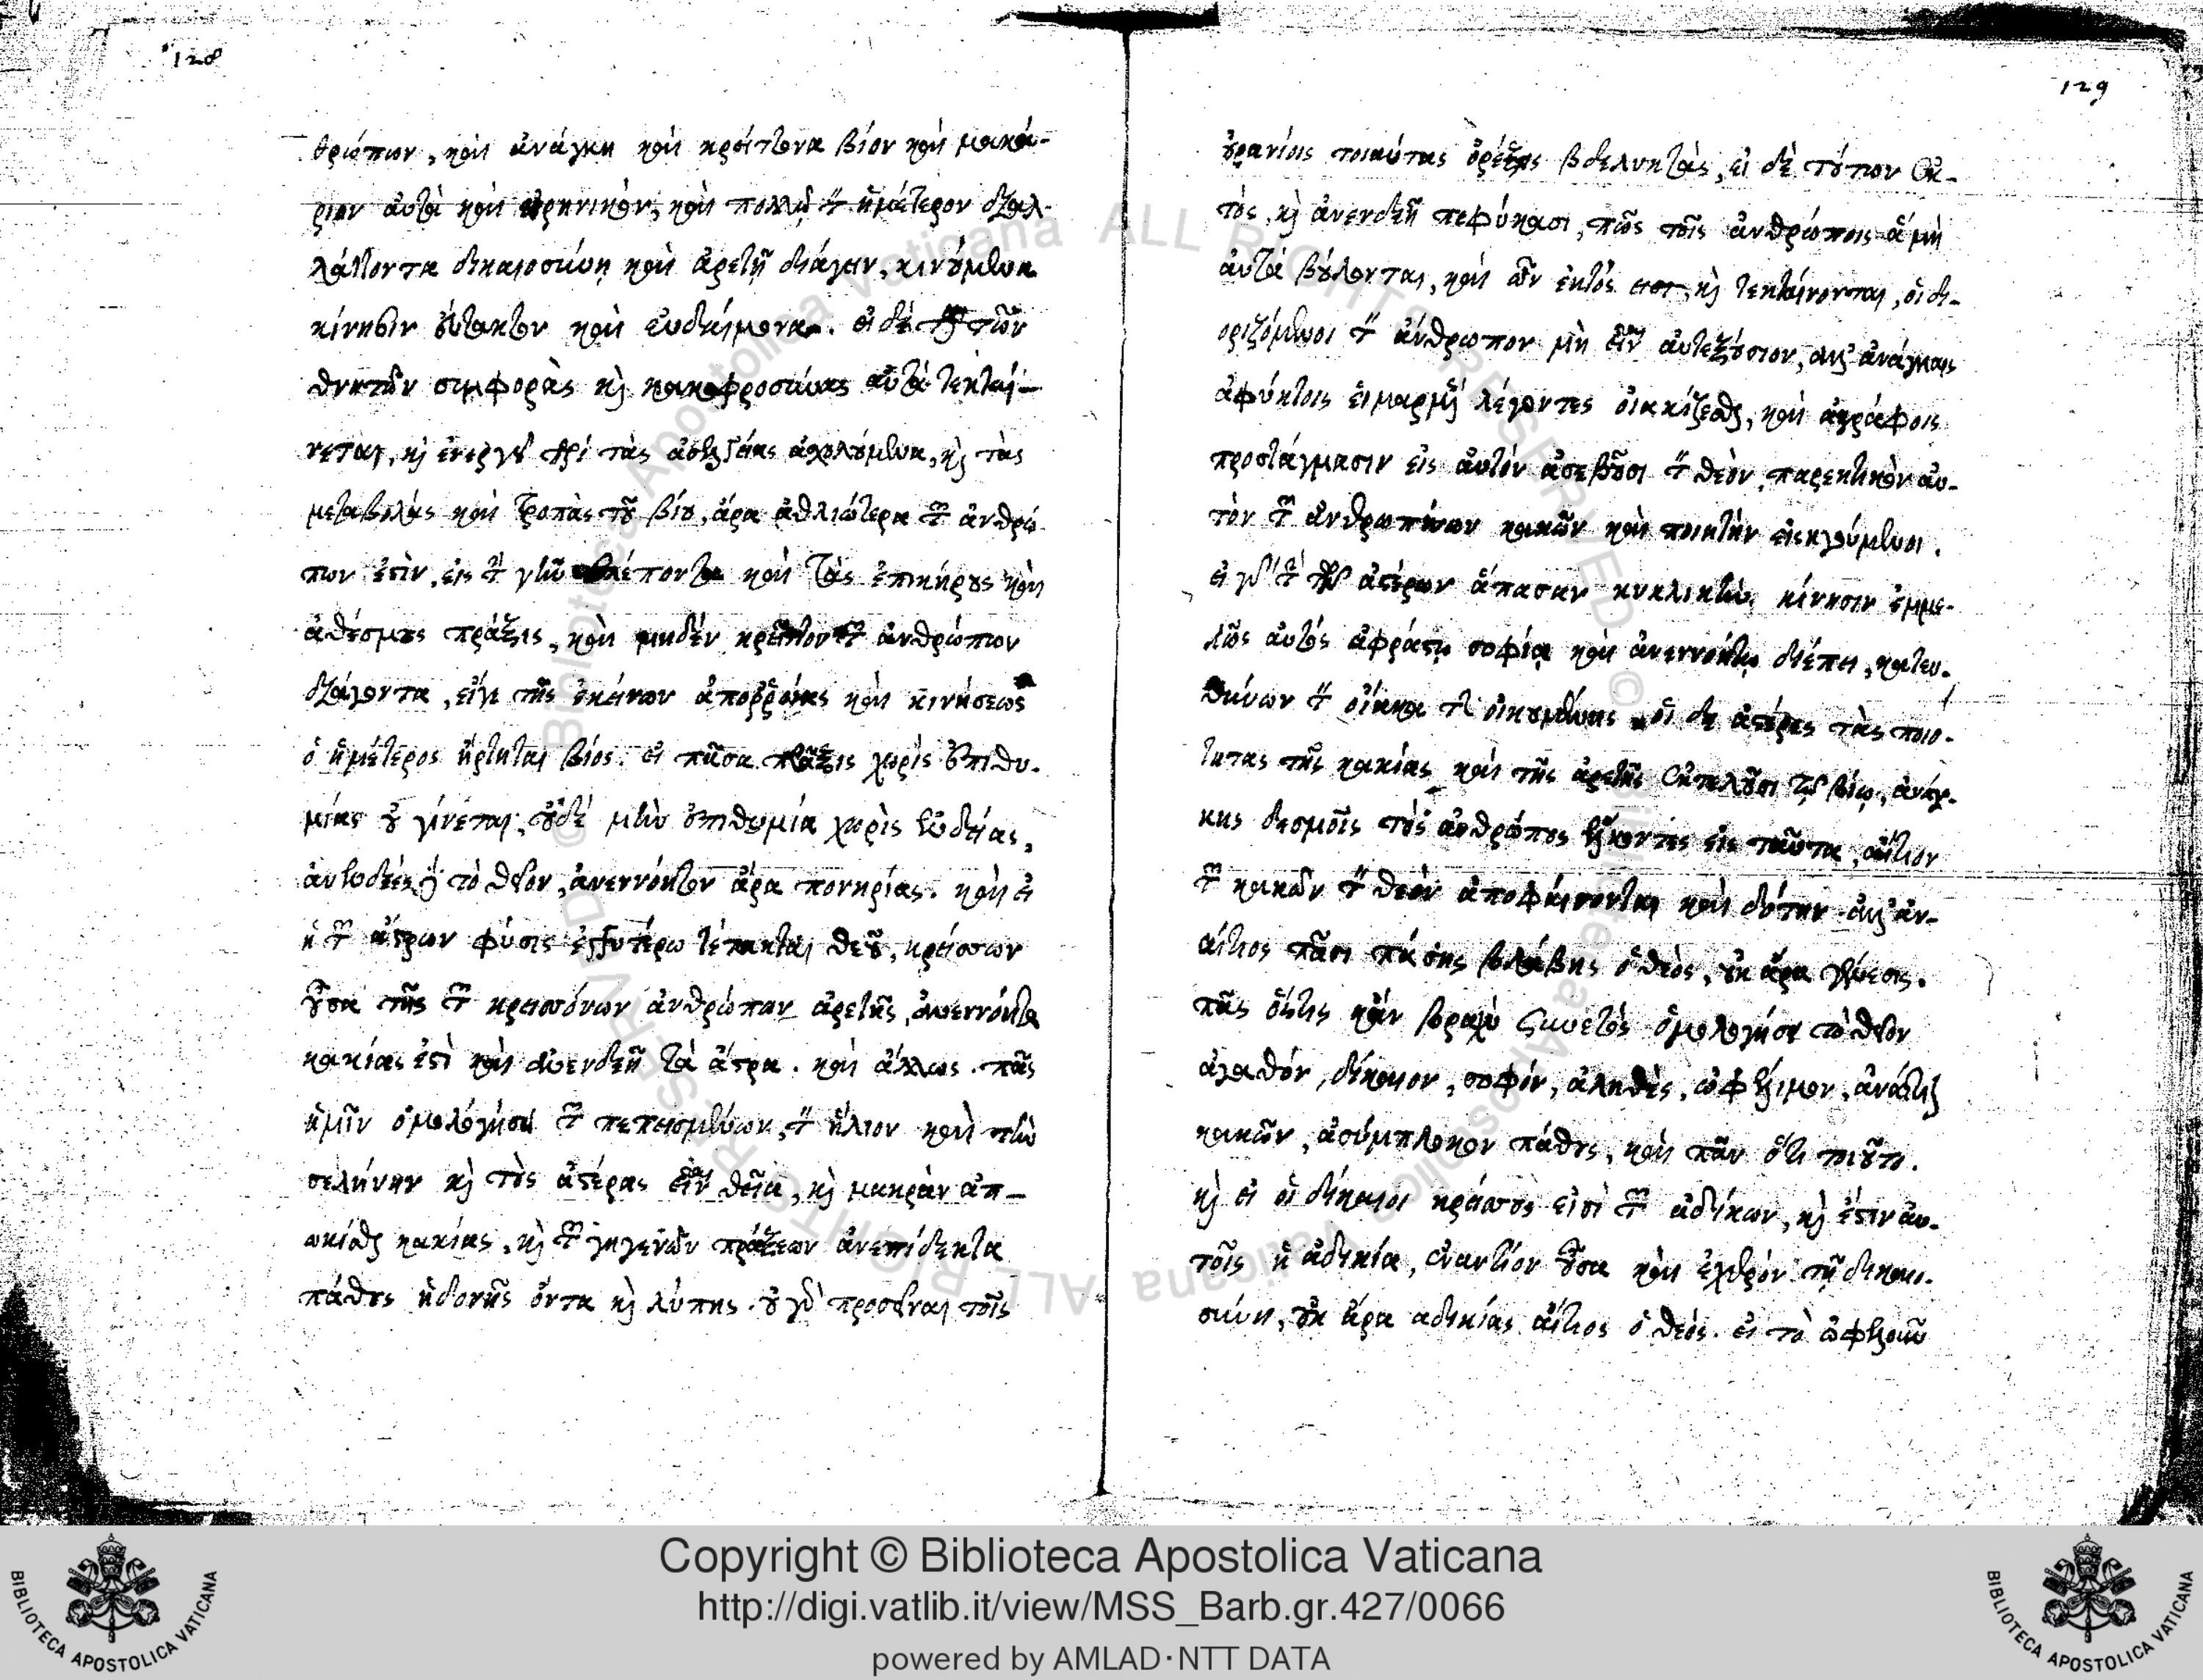 128
θρώπων, καὶ ἀνάγκη καὶ κρείττονα βίον καὶ μακά-
ριον αὐτὰ καὶ εἰρηνικὸν, καὶ πολλῷ τὸν ἡμέτερον διαλ-
λάττοντα δικαιοσύνη καὶ ἀρετῇ διάγειν, κινούμενα
κίνησιν εὔτακτον καὶ εὐδαίμονα. εἰ δὲ τῶν
θνητῶν συμφορὰς καὶ κακοφροσύνας αὐτὰ τεκταί-
νεται, καὶ ἐνεργεῖ περὶ τὰς ἀσελγείας ἀσχολούμενα, καὶ τὰς
μεταβολὰς καὶ τροπὰς τοῦ βίου, ἄρα ἀθλιώτερα τῶν ἀνθρώ-
πων ἐστὶν, εἰς τὴν γῆν βλέποντα καὶ τὰς ἐπικήρους καὶ
ἀθέσμους πράξεις, καὶ μηδὲν κρεῖττον τῶν ἀνθρώπων
διάγοντα, εἴγε τῆς ἐκείνων ἀπορροίας καὶ κινήσεως
ὁ ἡμέτερος ἤρτηται βίος. εἰ πᾶσα πρᾶξις χωρὶς ἐπιθυ-
μίας οὐ γίνεται, οὐδὲ μὴν ἐπιθυμία χωρὶς ἐνδείας,
ἀνενδεὲς δὲ τὸ θεῖον, ἀνεννόητον ἄρα πονηρίας. καὶ εἰ
ἡ τῶν ἄστρων φύσις ἐγγυτέρω τέτακται θεοῦ, κρείσσων
οὖσα τῆς τῶν κρεισσόνων ἀνθρώπων ἀρετῆς, ἀνεννόητα
κακίας ἐστὶ καὶ ἀνενδεῆ τὰ ἄστρα. καὶ ἄλλως. πᾶς
ἡμῖν ὁμολογήσει τῶν πεπεισμένων, τὸν ἥλιον καὶ τὴν
σελήνην καὶ τοὺς ἀστέρας εἶναι θεῖα, καὶ μακρὰν ἀπ-
ωκίσθαι κακίας, καὶ τῶν γηγενῶν πράξεων ἀνεπίδεκτα
πάθους ἡδονῆς ὄντα καὶ λύπης. οὐ γὰρ προσεῖναι τοῖς
129
οὐρανίοις τοιαύτας ὀρέξεις βδελυκτάς, εἰ δὲ τούτων ἐκ-
τός, καὶ ἀνενδεῆ πεφύκασι, πῶς τοῖς ἀνθρώποις ἃ μὴ
αὐτὰ βούλονται, καὶ ὧν ἐκτός εἰσι, καὶ τεκταίνονται, οἱ δι-
οριζόμενοι τὸν ἄνθρωπον μὴ εἶναι αὐτεξούσιον, ἀλλ' ἀνάγκαις
ἀφύκτοις εἱμαρμένης λέγοντες οἰακίζεσθαι, καὶ ἀγράφοις
προστάγμασιν εἰς αὐτὸν ἀσεβοῦσι τὸν θεὸν, παρεκτικὸν αὐ-
τὸν τῶν ἀνθρωπίνων κακῶν καὶ ποιητὴν εἰσηγούμενοι.
εἰ γὰρ τὴν τῶν ἀστέρων ἅπασαν κυκλικὴν κίνησιν ἐμμε-
λῶς αὐτὸς ἀφράστῳ σοφίᾳ καὶ ἀνεννοήτῳ διέπει, κατευ-
θύνων τὸν οἴακα τῆς οἰκουμένης, οἱ δὲ ἀστέρες τὰς ποιό-
τητας τῆς κακίας καὶ τῆς ἀρετῆς ἐκτελοῦσι τῷ βίῳ, ἀνάγ-
κης δεσμοῖς τοὺς ἀνθρώπους ἕλκοντες εἰς ταῦτα, αἴτιον
τῶν κακῶν τὸν θεὸν ἀποφαίνονται καὶ δότην. ἀλλ' ἀν-
αίτιος πᾶσι πάσης βλάβης ὁ θεός, οὐκ ἄρα γένεσις.
πᾶς ὅστις κἂν βραχὺ συνετὸς ὁμολογήσει τὸ θεῖον
ἀγαθόν, δίκαιον, σοφόν, ἀληθὲς, ὠφέλιμον, ἀναίτιον
κακῶν, ἀσύμπλοκον πάθους, καὶ πᾶν ὅτι τοιοῦτο.
καὶ εἰ οἱ δίκαιοι κρείσσους εἰσὶ τῶν ἀδίκων, καὶ ἔστιν αὐ-
τοῖς ἡ ἀδικία, ἐναντίον οὖσα καὶ ἐχθρὸν τῇ δικαιο-
σύνῃ, οὐκ ἄρα ἀδικίας αἴτιος ὁ θεός. εἰ τὸ ὠφελοῦν
Copyright © Biblioteca Apostolica Vaticana
http://digi.vatlib.it/view/MSS_Barb.gr.427/0066
powered by AMLAD·NTT DATA
BIBLIOTECA APOSTOLICA VATICANA
BIBLIOTECA APOSTOLICA VATICANA